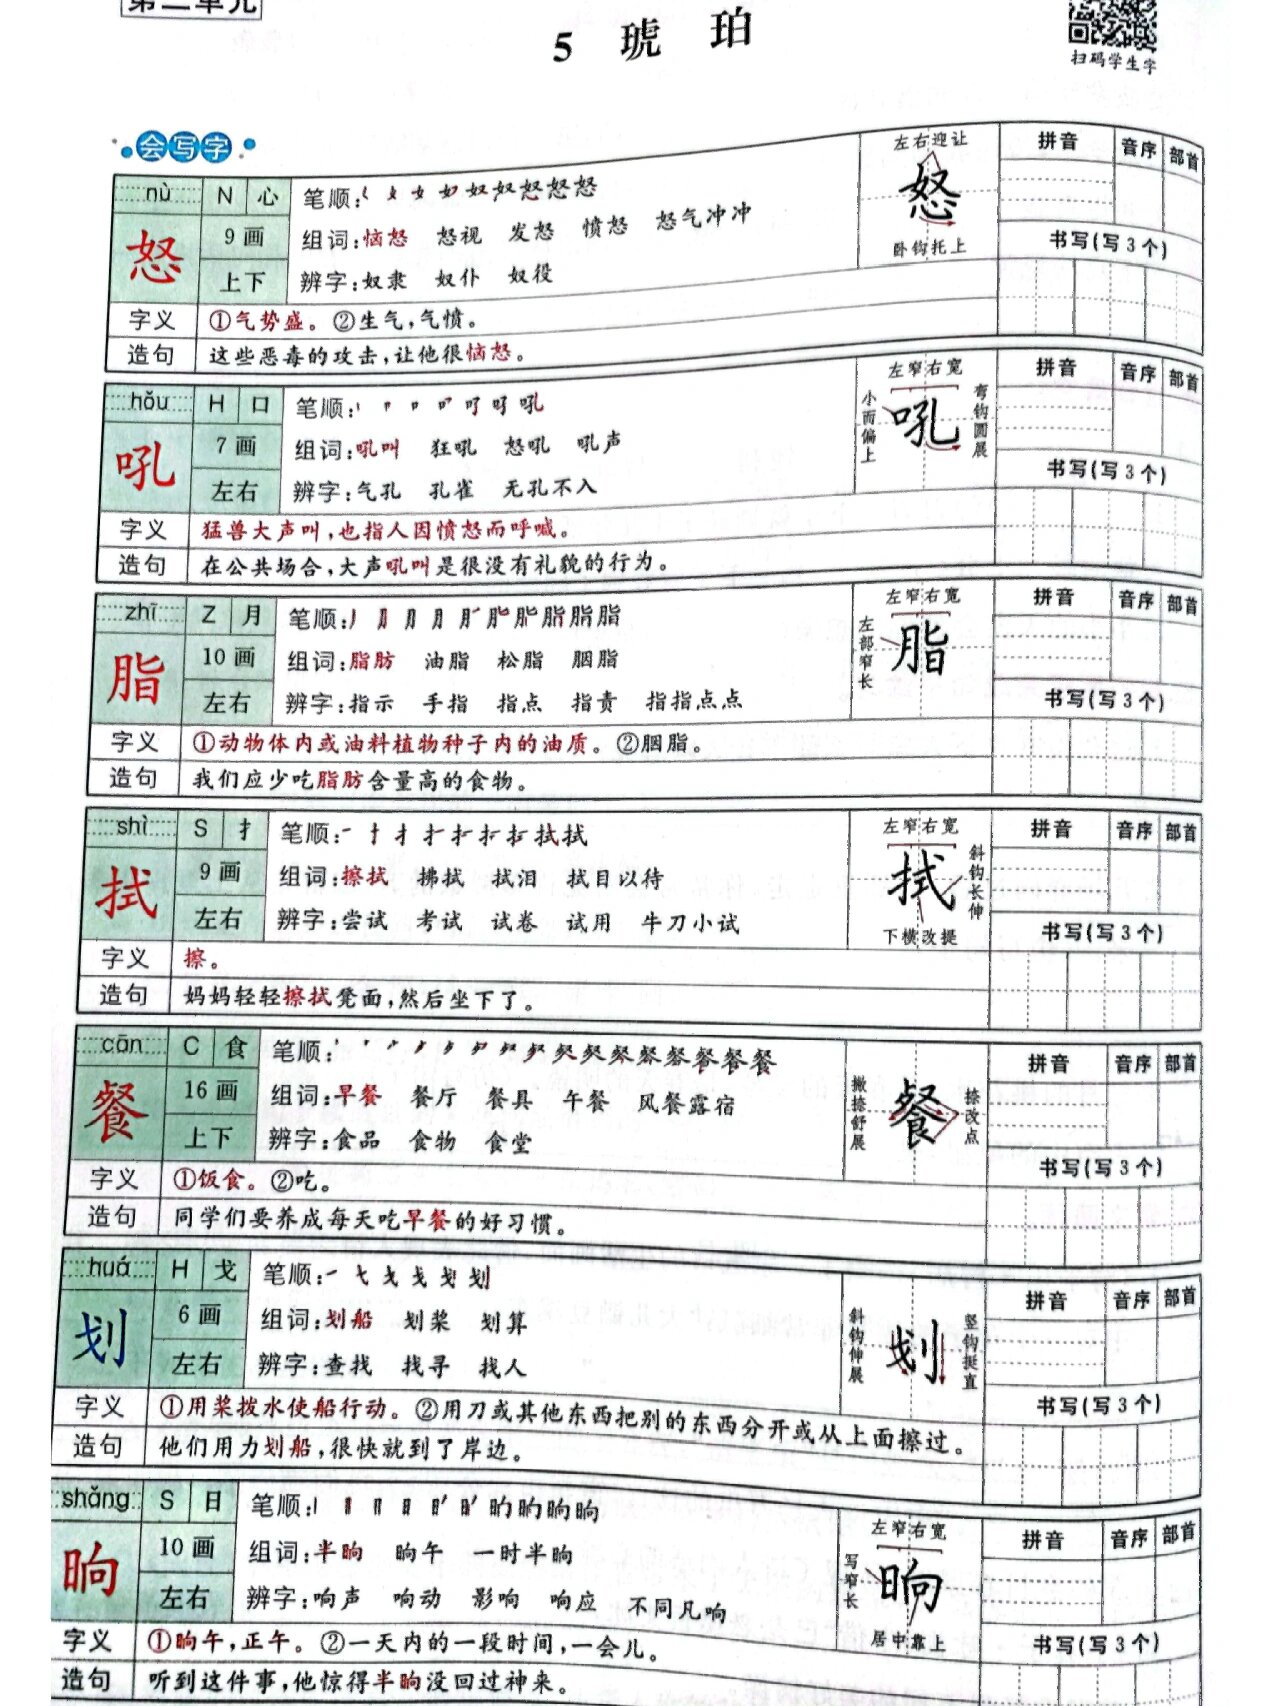 第二单元
5 琥珀
扫码学生字
会写字
nù N 心
怒
9画
上下
笔顺:
组词:恼怒 怒视 发怒 愤怒 怒气冲冲
辨字:奴隶 奴仆 奴役
左右迎让
怒
卧钩托上
拼音 音序 部首
书写(写3个)
字义 ①气势盛。②生气,气愤。
造句 这些恶毒的攻击,让他很恼怒。
hǒu H 口
吼
7画
左右
笔顺:
组词:吼叫 狂吼 怒吼 吼声
辨字:气孔 孔雀 无孔不入
左窄右宽
小而偏上
吼
弯钩圆展
拼音 音序 部首
书写(写3个)
字义 猛兽大声叫,也指人因愤怒而呼喊。
造句 在公共场合,大声吼叫是很没有礼貌的行为。
zhī Z 月
脂
10画
左右
笔顺:
组词:脂肪 油脂 松脂 胭脂
辨字:指示 手指 指点 指责 指指点点
左窄右宽
左部窄长
脂
拼音 音序 部首
书写(写3个)
字义 ①动物体内或油料植物种子内的油质。②胭脂。
造句 我们应少吃脂肪含量高的食物。
shì S 扌
拭
9画
左右
笔顺:
组词:擦拭 拂拭 拭泪 拭目以待
辨字:尝试 考试 试卷 试用 牛刀小试
左窄右宽
拭
斜钩长伸
下横改提
拼音 音序 部首
书写(写3个)
字义 擦。
造句 妈妈轻轻擦拭凳面,然后坐下了。
cān C 食
餐
16画
上下
笔顺:
组词:早餐 餐厅 餐具 午餐 风餐露宿
辨字:食品 食物 食堂
撇捺舒展
餐
捺改点
拼音 音序 部首
书写(写3个)
字义 ①饭食。②吃。
造句 同学们要养成每天吃早餐的好习惯。
huá H 戈
划
6画
左右
笔顺:
组词:划船 划桨 划算
辨字:查找 找寻 找人
斜钩伸展
划
竖钩挺直
拼音 音序 部首
书写(写3个)
字义 ①用桨拨水使船行动。②用刀或其他东西把别的东西分开或从上面擦过。
造句 他们用力划船,很快就到了岸边。
shǎng S 日
晌
10画
左右
笔顺:
组词:半晌 晌午 一时半晌
辨字:响声 响动 影响 响应 不同凡响
左窄右宽
写窄长
晌
居中靠上
拼音 音序 部首
书写(写3个)
字义 ①晌午,正午。②一天内的一段时间,一会儿。
造句 听到这件事,他惊得半晌没回过神来。